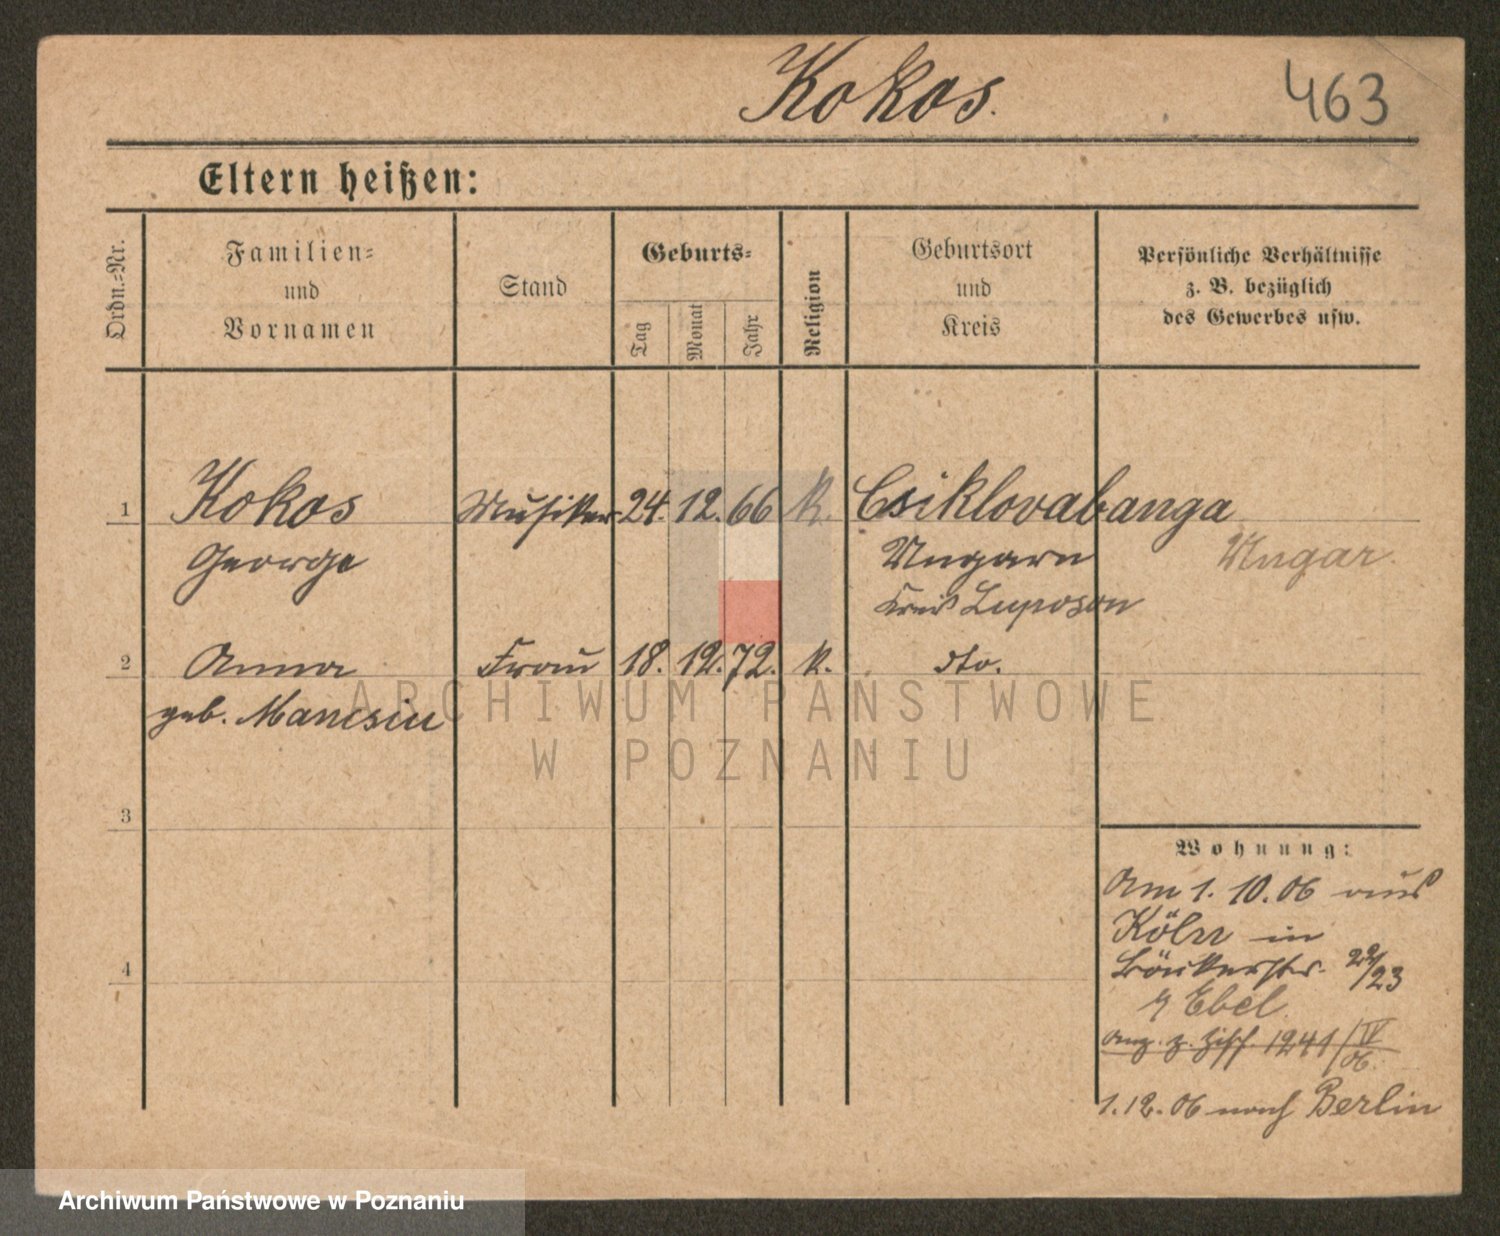 Kokos.
463
Eltern heißen:
Ordn.-Nr.
Familien-
und
Vornamen
Stand
Geburts-
Tag
Monat
Jahr
Religion
Geburtsort
und
Kreis
Persönliche Verhältnisse
z. B. bezüglich
des Gewerbes usw.
1 Kokos Musiker 24. 12. 66 k. Csiklovabanga
George Ungarn Ungar.
Kreis
2 Anna Frau 18. 12. 72. k. dto.
geb. Mancsiu
ARCHIWUM PAŃSTWOWE
W POZNANIU
3
Wohnung:
Am 1. 10. 06 aus
Köln in
Bäckerstr. 22/23
Ebel
4
Anz. z. Ziff. 1241/IV 06.
1. 12. 06 nach Berlin
Archiwum Państwowe w Poznaniu